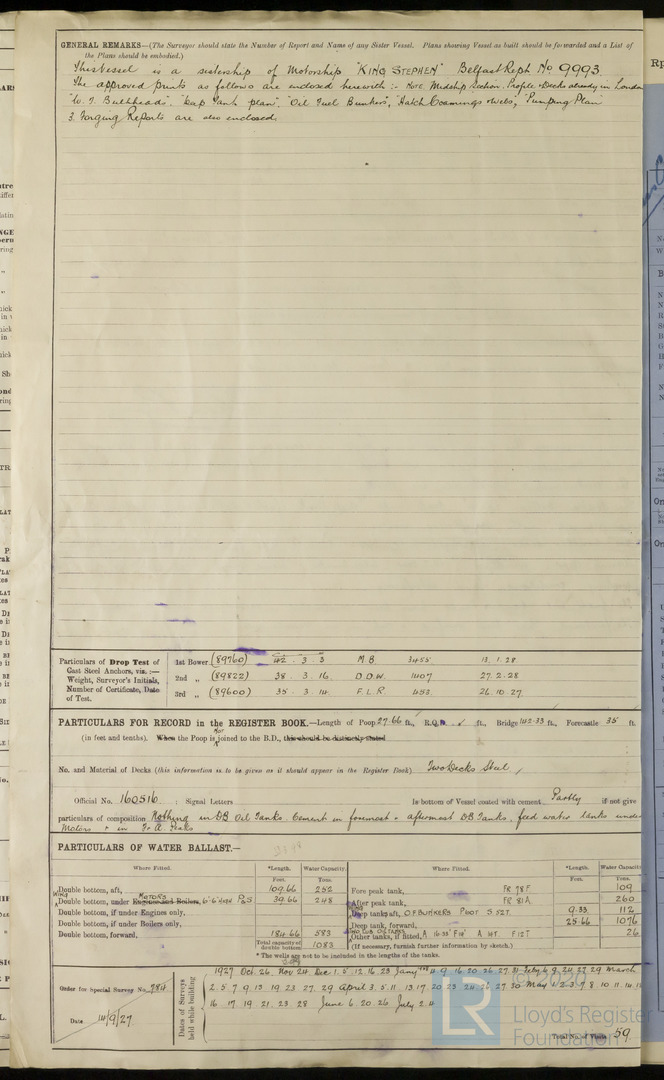 GENERAL REMARKS—(The Surveyor should state the Number of Report and Name of any Sister Vessel. Plans showing Vessel as built should be forwarded and a List of
the Plans should be embodied.)
This Vessel is a sistership of Motorship "KING STEPHEN" Belfast Rept No 9993
The approved prints as follows are enclosed herewith :- Note Midship Section, Profile & Decks already in London
"W.T. Bulkheads", "Deep Tank plan", "Oil Fuel Bunkers", "Hatch Coamings & Webs", "Pumping Plan"
3 Forging Reports are also enclosed.
Particulars of Drop Test of
Cast Steel Anchors, viz. :—
Weight, Surveyor's Initials,
Number of Certificate, Date
of Test.
1st Bower (89760) 42 . 3 . 3 M B 3455 13.1.28
2nd „ (89822) 38 . 3 . 16. D.D.W. 1407 27.2.28
3rd „ (89600) 35 . 3 . 14. F.L.R. 453 26.10.27
PARTICULARS FOR RECORD in the REGISTER BOOK.—Length of Poop 27.66 ft., R.Q.D. ft., Bridge 142.33 ft., Forecastle 35 ft.
(in feet and tenths). When the Poop is Not joined to the B.D., this should be distinctly stated
No. and Material of Decks (this information is to be given as it should appear in the Register Book) Two Decks Steel
Official No. 160516 : Signal Letters Is bottom of Vessel coated with cement Partly if not give
particulars of composition Nothing in DB Oil Tanks. Cement in foremost & aftermost DB Tanks, feed water tanks under
Motors & in F & A Peaks
PARTICULARS OF WATER BALLAST.—
Where Fitted. *Length. Water Capacity. Where Fitted. *Length. Water Capacity
Feet. Tons. Feet. Tons.
Double bottom, aft, 109.66 252 Fore peak tank, FR 78 F 109
Double bottom, under Engines and Boilers, MOTORS P&S 39.66 248 After peak tank, FR 81 A 260
Double bottom, if under Engines only, Deep tank, aft, O.F. BUNKERS P 110T S 52T. 9.33 112
Double bottom, if under Boilers only, Deep tank, forward, 25.66 1076
Double bottom, forward, 184.66 583 Other tanks, if fitted, 26
Total capacity of double bottom 1083 (If necessary, furnish further information by sketch.)
* The wells are not to be included in the lengths of the tanks.
Order for Special Survey No. 784
Date 14/9/27
Dates of Surveys
held while building
1927 Oct. 26. Nov 24. Dec 1. 5. 12. 16. 23 Jany 4. 9. 16 20. 26. 27. 31 Feby 6. 9. 24. 27. 29 March
2. 5. 7. 9. 13 19. 23 27. 29 April 3. 5. 11. 13. 17 20 23 24. 26 27. 30 May 1. 2. 3. 7. 8. 10. 11. 14. 15
16. 17. 19. 21. 23. 28 June 6. 20. 26. July 2. 4
Total No. of Visits 59
© 2020
LR
Lloyd's Register
Foundation